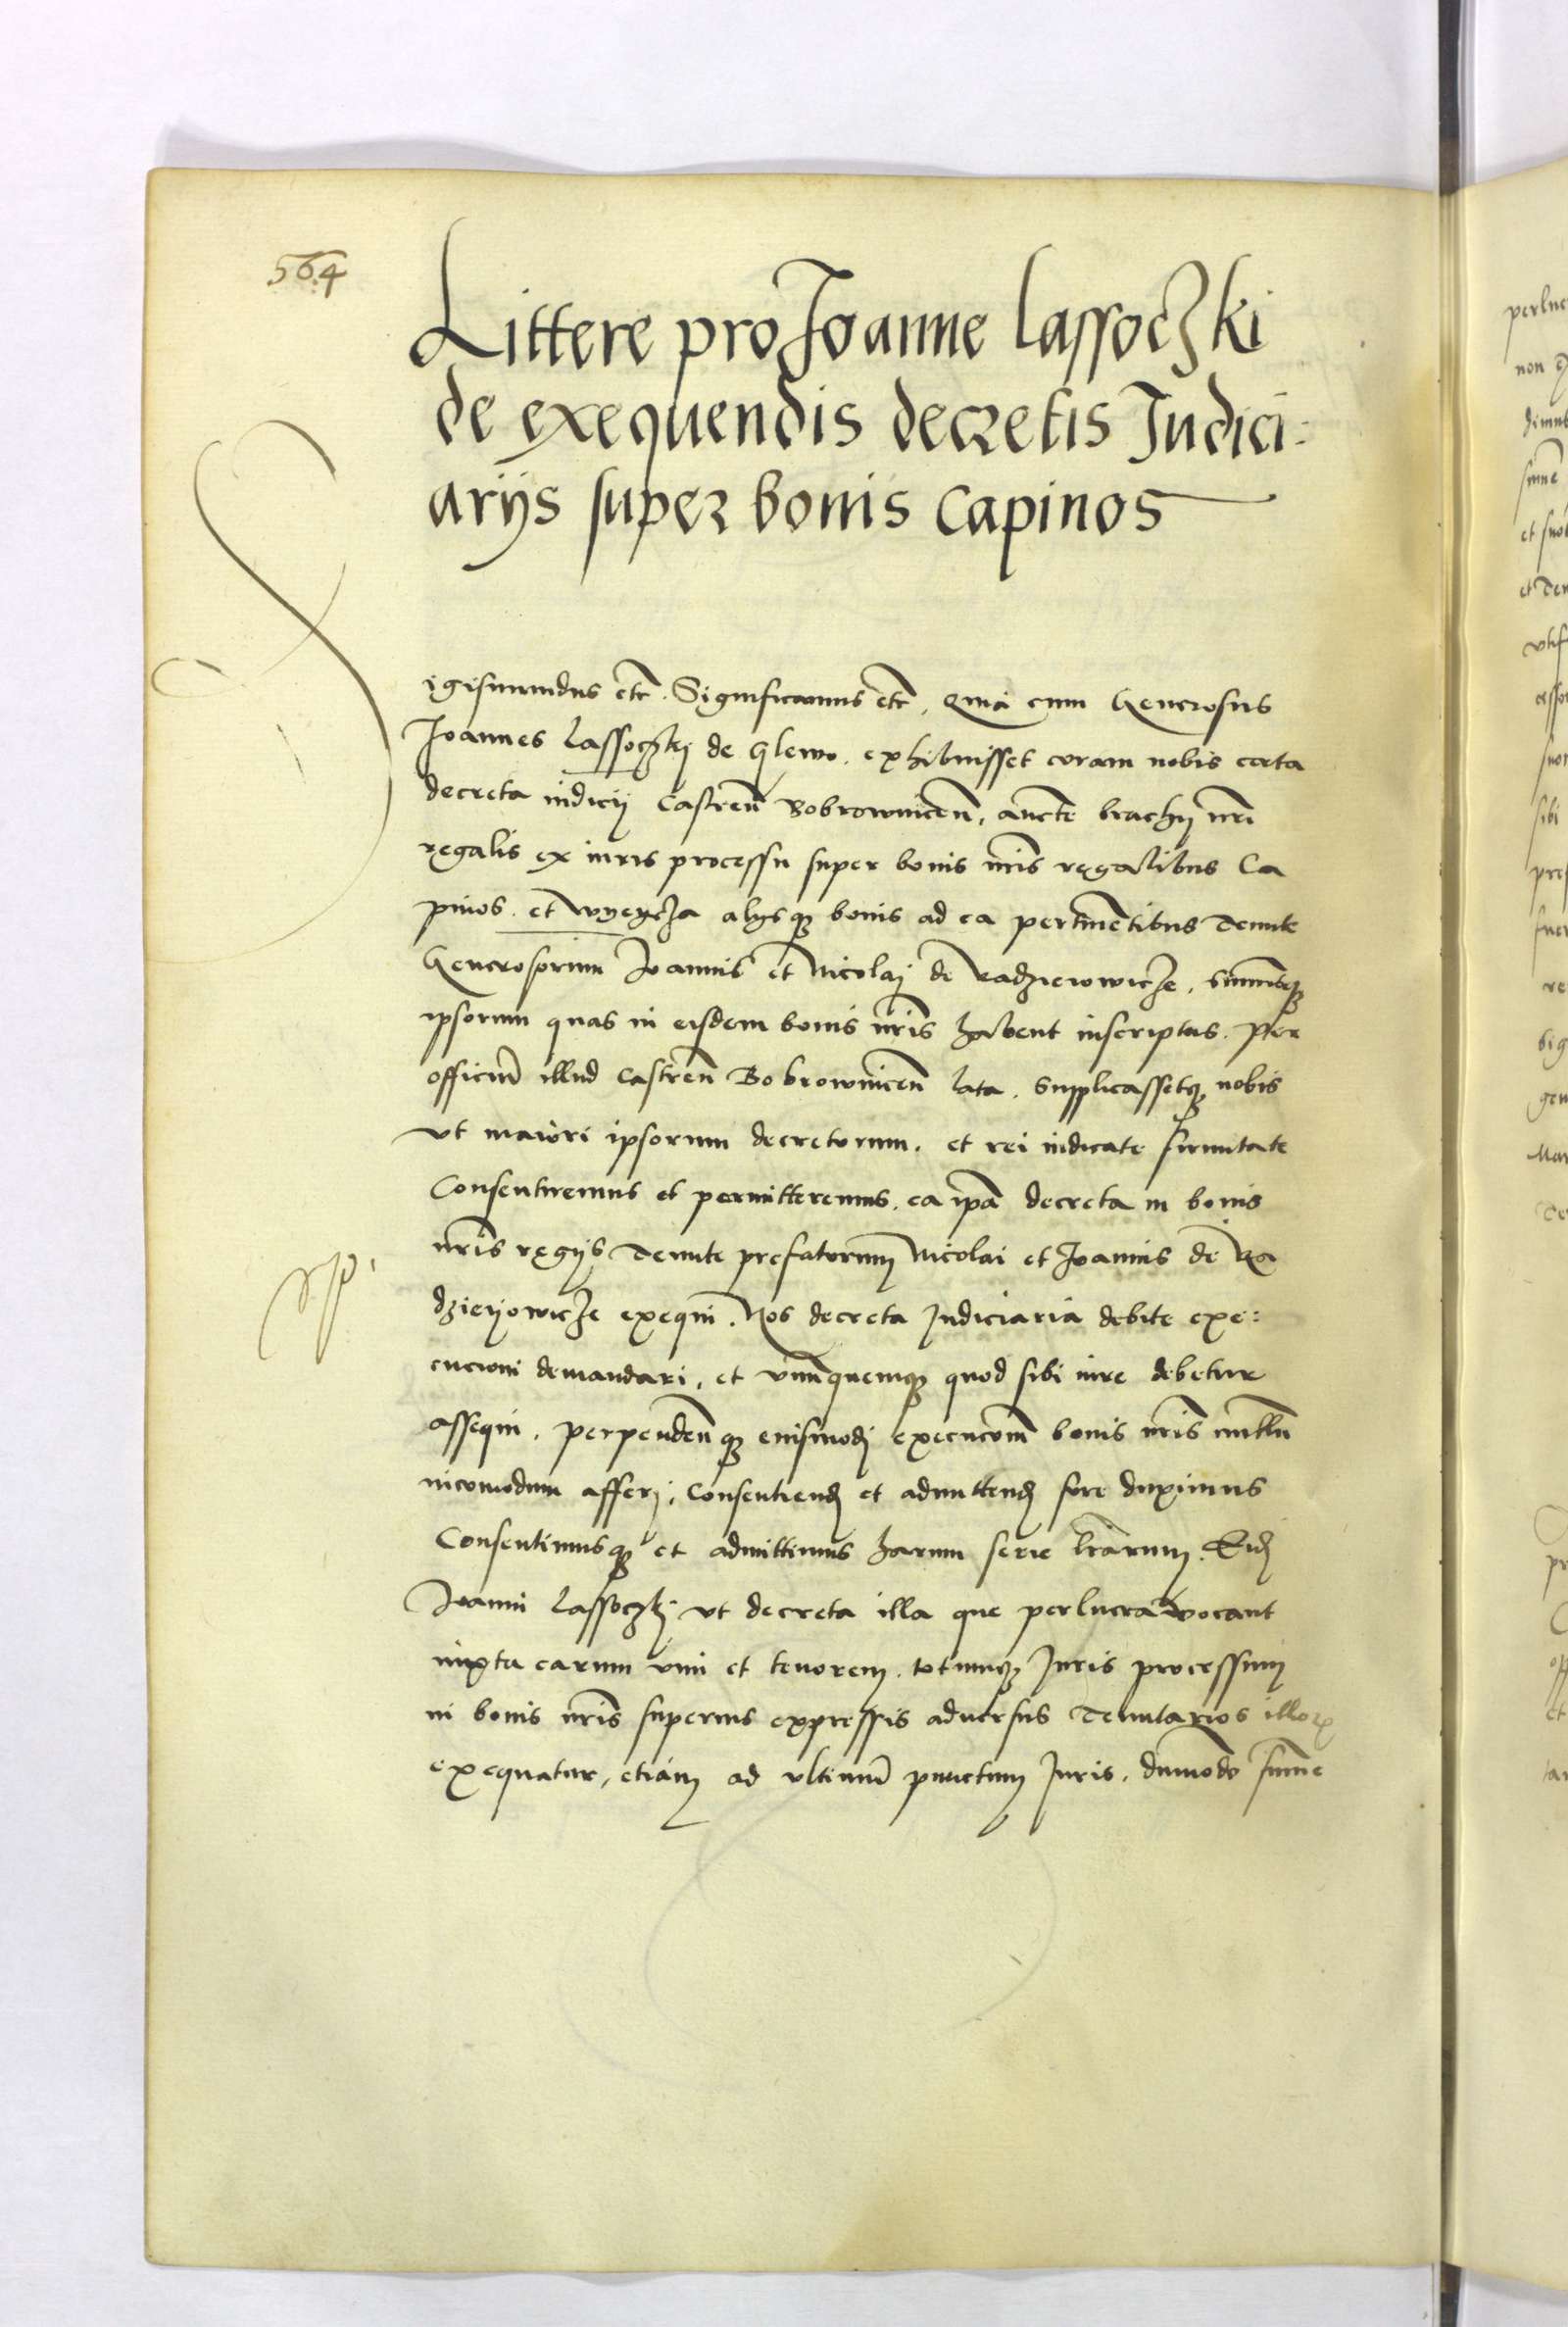 564
Littere pro Joanne Lassoczki
de exequendis decretis Judici:
arijs super bonis Capinos
Sigismundus etc. Significamus etc. Quia cum Generosus
Joannes Lassoczkj de Glewo. exhibuisset coram nobis certa
decreta iudicij Castren̄ Bobrownicen̄, aucte brachij nr̄i
regalis ex iuris processu super bonis nr̄is regalibus Ca
pinos. et Wyegcza alijsq; bonis ad ea pertinētibus Tenute
Generosorum Joannis et Nicolaj de Radzieiowicze, summisq;
ipsorum quas in eisdem bonis nr̄is habent inscriptas. per
officiū illud Castren̄ Bobrownicen̄ lata. Supplicassetq; nobis
vt maiori ipsorum decretorum. et rei iudicate firmitate
Consentiremus et permitteremus. ea ip̄a decreta in bonis
nr̄is regijs Tenute prefatorum Nicolai et Joannis de Ra
dzieyowicze exequi. Nos decreta Judiciaria debite exe:
cucioni demandari, et vnūquemq; quod sibi iure debetur
assequi. perpenden̄q; eiusmodj execuc̄om̄ bonis nr̄is nullū
incomodum afferj, Consentiend̄ et admittend̄ fore duximus
Consentimusq; et admittimus harum serie lr̄arum. Eid̄
Joanni Lassoczkj vt decreta illa que perlucra vocant
iuxta earum vim et tenorem. totumq; Juris processum
in bonis nr̄is superius expressis aduersus Tenutarios illoꝝ
exequatur, etiam ad vltimū punctum Juris. dummodo sum̄e